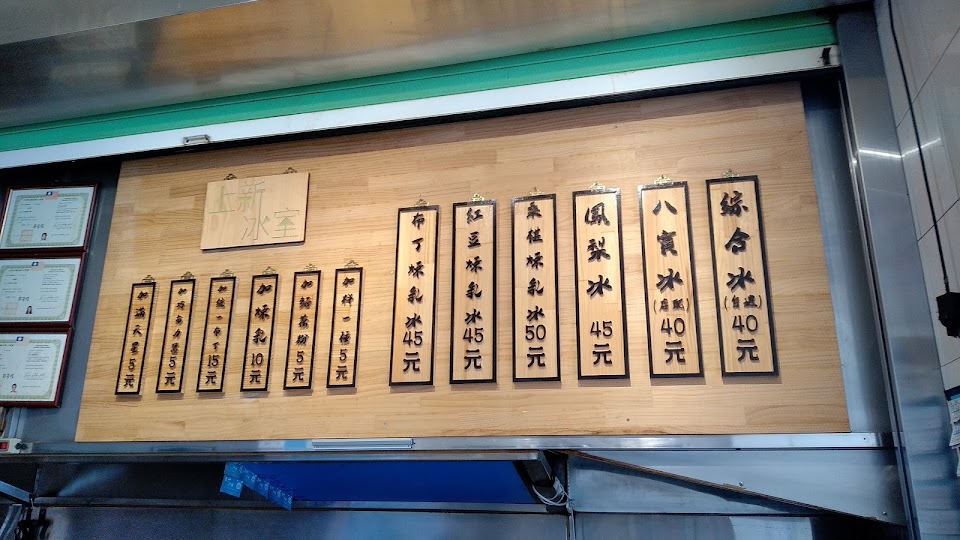 上新
冰室
綜合冰(自選)40元
八寶冰(店配)40元
鳳梨冰45元
桑椹煉乳冰50元
紅豆煉乳冰45元
布丁煉乳冰45元
加樣一種5元
5元
加煉乳10元
加統一布丁15元
5元
加滿天星5元